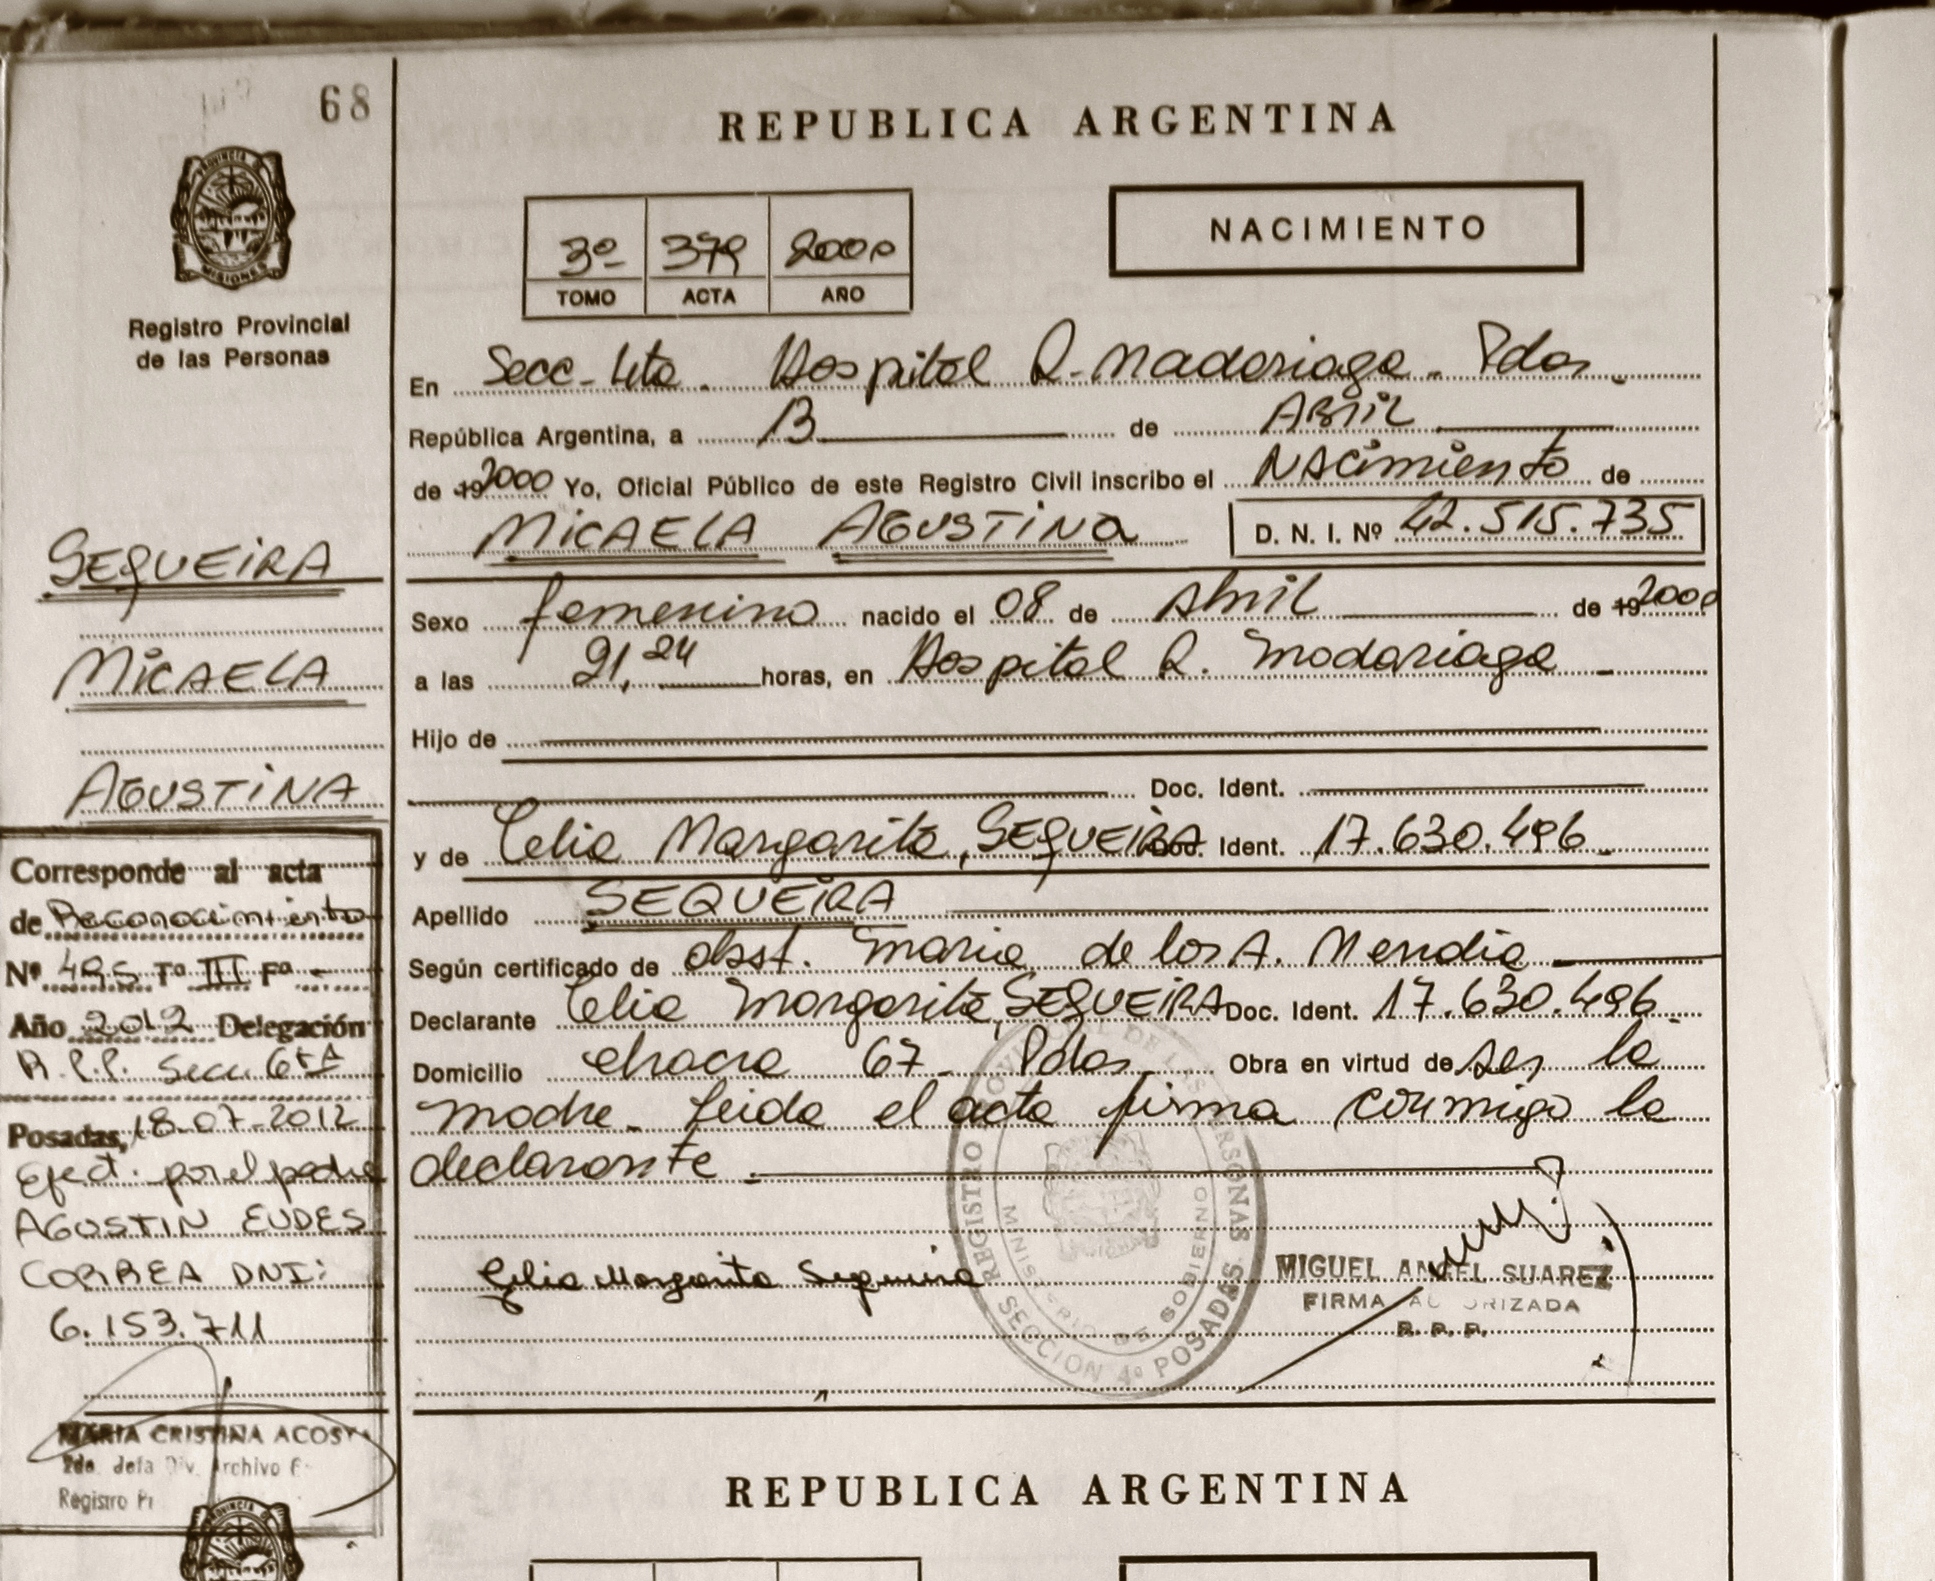 68
REPUBLICA ARGENTINA
PROVINCIA DE
MISIONES
Registro Provincial
de las Personas
NACIMIENTO
3º 379 2000
TOMO ACTA AÑO
En Secc-4ta. Hospital R. Madariaga. Pdas.
República Argentina, a 13 de ABRIL
de 19 2000 Yo, Oficial Público de este Registro Civil inscribo el NACimiento de
MiCAELA AGUSTiNA D. N. I. Nº 42.515.735
Sexo femenino nacido el 08 de Abril de 19 2000
a las 21,24 horas, en Hospital R. Madariaga
Hijo de
Doc. Ident.
y de Celia Margarita, SEQUEiRA Doc. Ident. 17.630.496
Apellido SEQUEiRA
Según certificado de obst. Maria de los A. Mendia
Declarante Celia Margarita, SEQUEiRA Doc. Ident. 17.630.496
Domicilio chacra 67 Pdas. Obra en virtud de ser la
madre. Leida el acta firma conmigo la
declarante.
Celia Margarita Sequeira
MIGUEL ANGEL SUAREZ
FIRMA AUTORIZADA
R. P. P.
REGISTRO PROVINCIAL DE LAS PERSONAS
MINISTERIO DE GOBIERNO
SECCION 4º POSADAS
SEQUEiRA
MiCAELA
AGUSTiNA
Corresponde al acta
de Reconocimiento
Nº 495 Tº III Fº -
Año 2012 Delegación
R.P.P. Secc. 6tA
Posadas, 18-07-2012
Efect. por el padre
AGUSTIN EUDES
CORREA DNI:
6.153.711
MARIA CRISTINA ACOSTA
Div. Archivo
Registro
PROVINCIA DE
REPUBLICA ARGENTINA